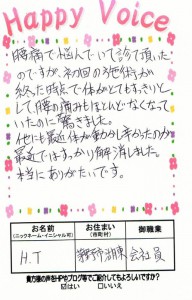 Happy Voice
腰痛で悩んでいて診て頂いた
のですが、初回の施術が
終った時点で体がとてもすっきりと
して腰の痛みもほとんどなくなって
いたのに驚きました。
他にも最近体が動かしづらかったのが
最近ではすっかり解消しました。
本当にありがたいです。
お名前
(ニックネーム・イニシャル可)
お住まい
(市町村)
御職業
H.T
湖東
会社員
貴方様の声をHPやブログ等でご紹介してもよろしいですか?
☑はい □いいえ